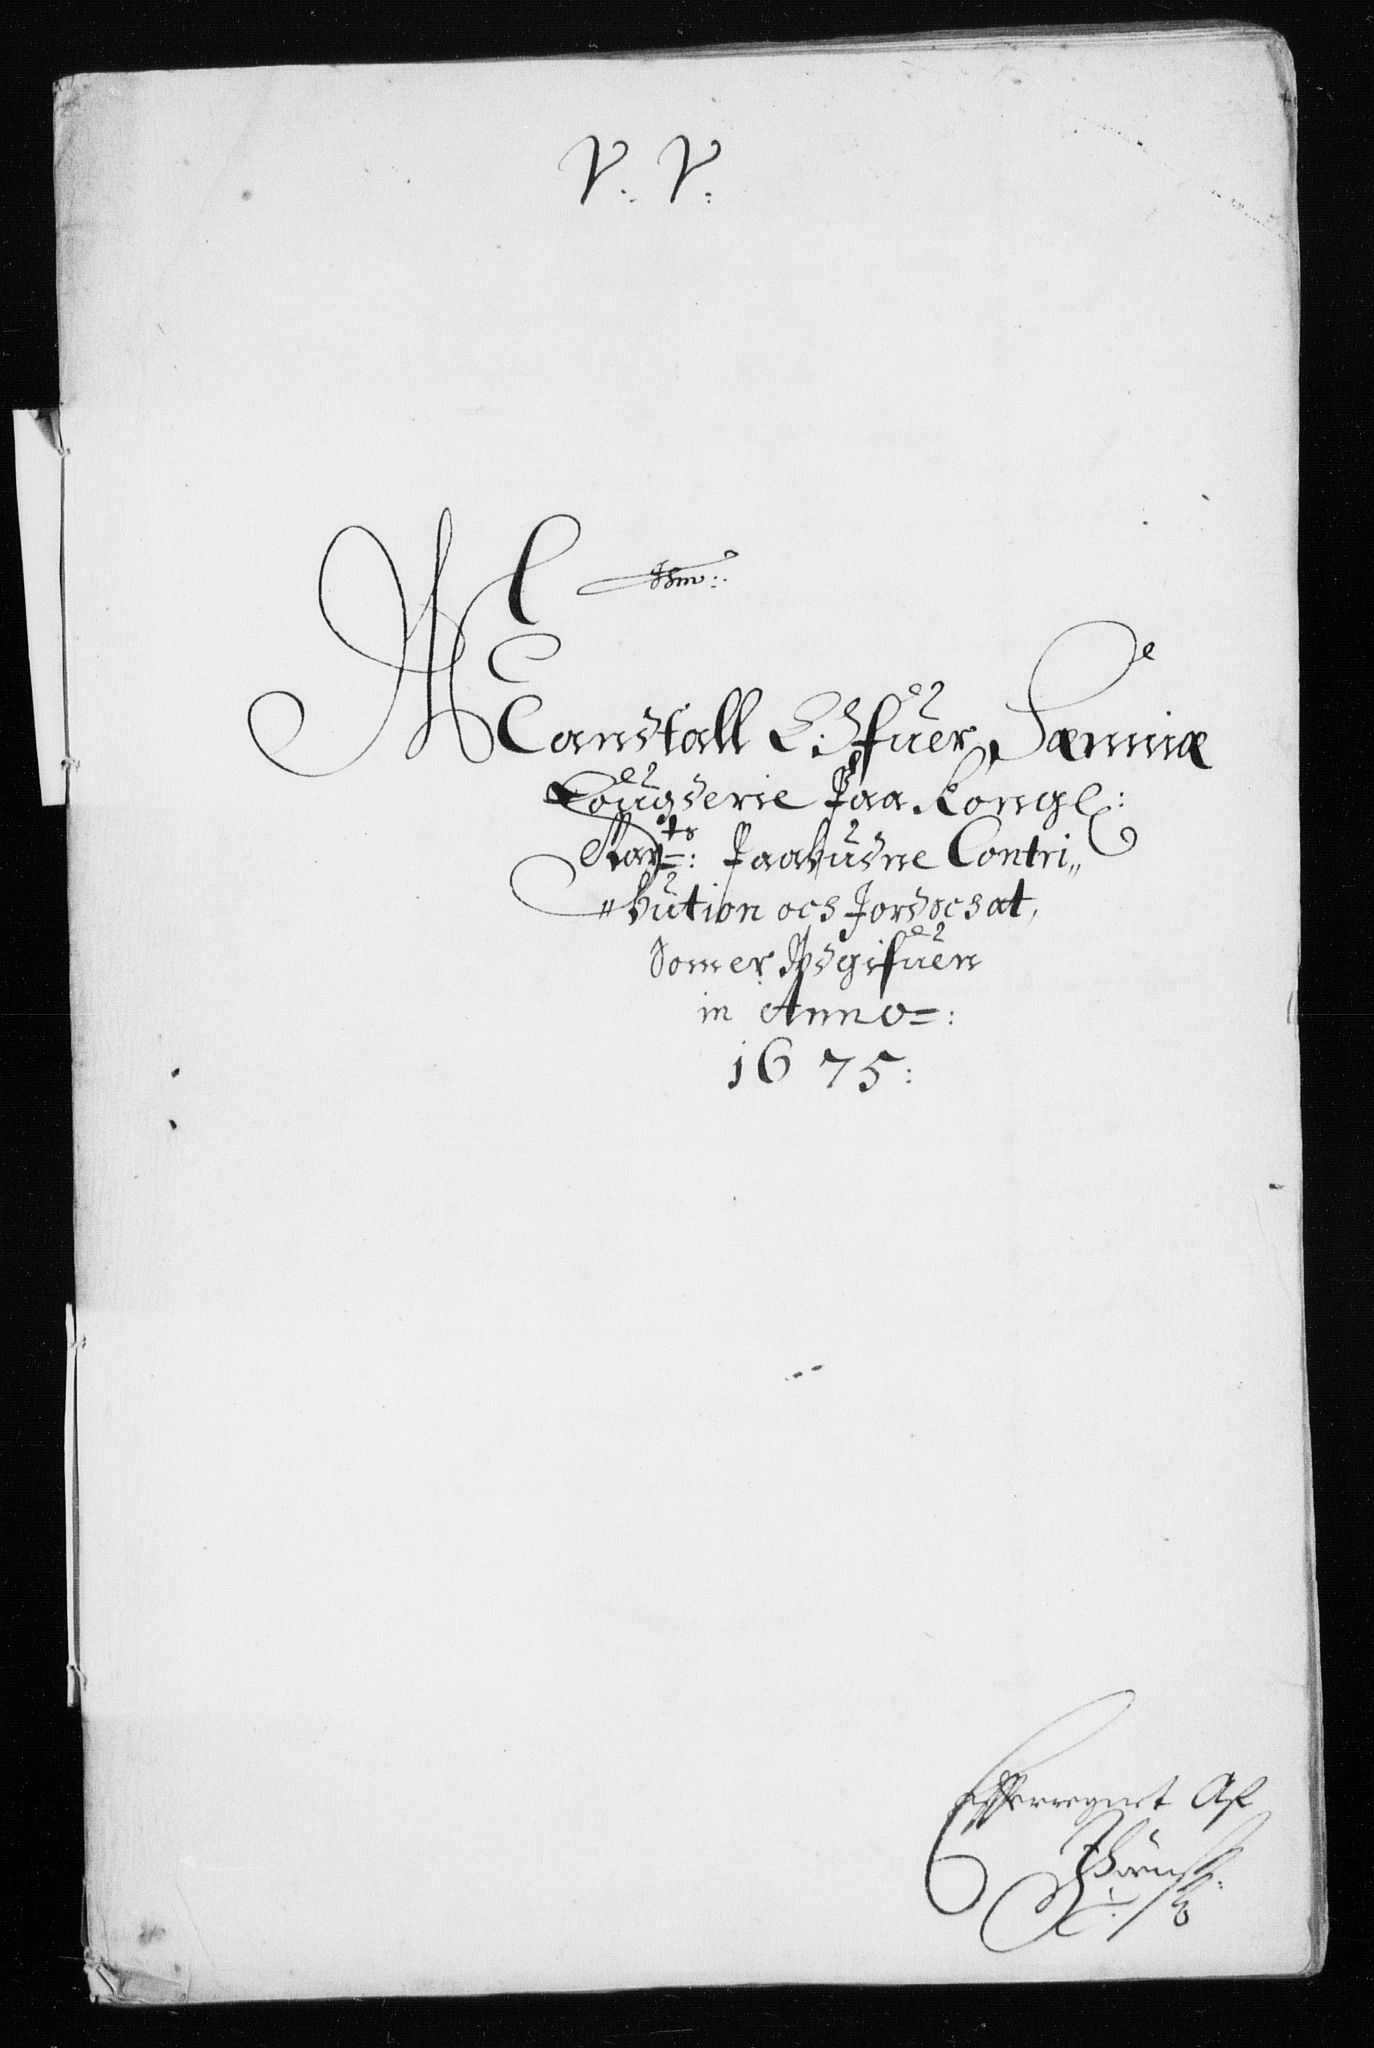 V. V.
Manttall Offuer Semiæ
Fougderie Paa Kongl:
May:ts: Paabudne Contri„
„bution och Jordschat,
Som er Udgifuen
in Anno=:
1675:
Efterregnet Af